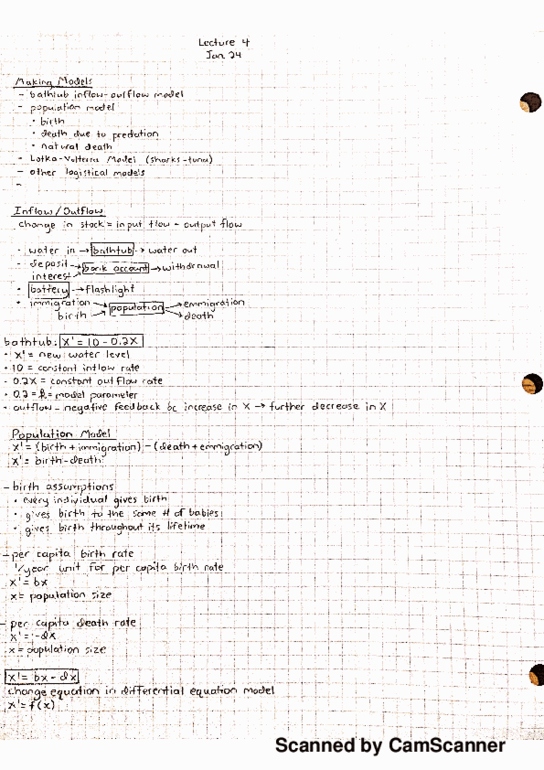 Lecture 4
Jan 24
Making Models
- bathtub inflow-outflow model
- population model
• birth
• death due to predation
• natural death
- Lotka-Volterra Model (sharks-tuna)
- other logistical models
-
Inflow/Outflow
change in stock = input flow - output flow
• water in → bathtub → water out
• deposit → bank account → withdrawal
interest
• battery → flashlight
• immigration → population → emmigration
birth → death
bathtub: X' = 10 - 0.2X
• X' = new water level
• 10 = constant inflow rate
• 0.2X = constant outflow rate
• 0.2 = k = model parameter
• outflow - negative feedback bc increase in X → further decrease in X
Population Model
X' = (birth + immigration) - (death + emmigration)
X' = birth - death
- birth assumptions
• every individual gives birth
• gives birth to the same # of babies
• gives birth throughout its lifetime
- per capita birth rate
1/year unit for per capita birth rate
x' = bx
x = population size
- per capita death rate
x' = -dx
x = population size
x' = bx - dx
change equation in differential equation model
x' = f(x)
Scanned by CamScanner